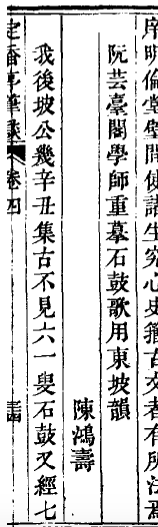 序明倫堂壁間使諸生究心史籀古文者有所法焉
阮芸臺閣學師重摹石鼓歌用東坡韻
陳鴻壽
我後坡公幾辛丑集古不見六一叟石鼓又經七
定香亭筆談 卷四